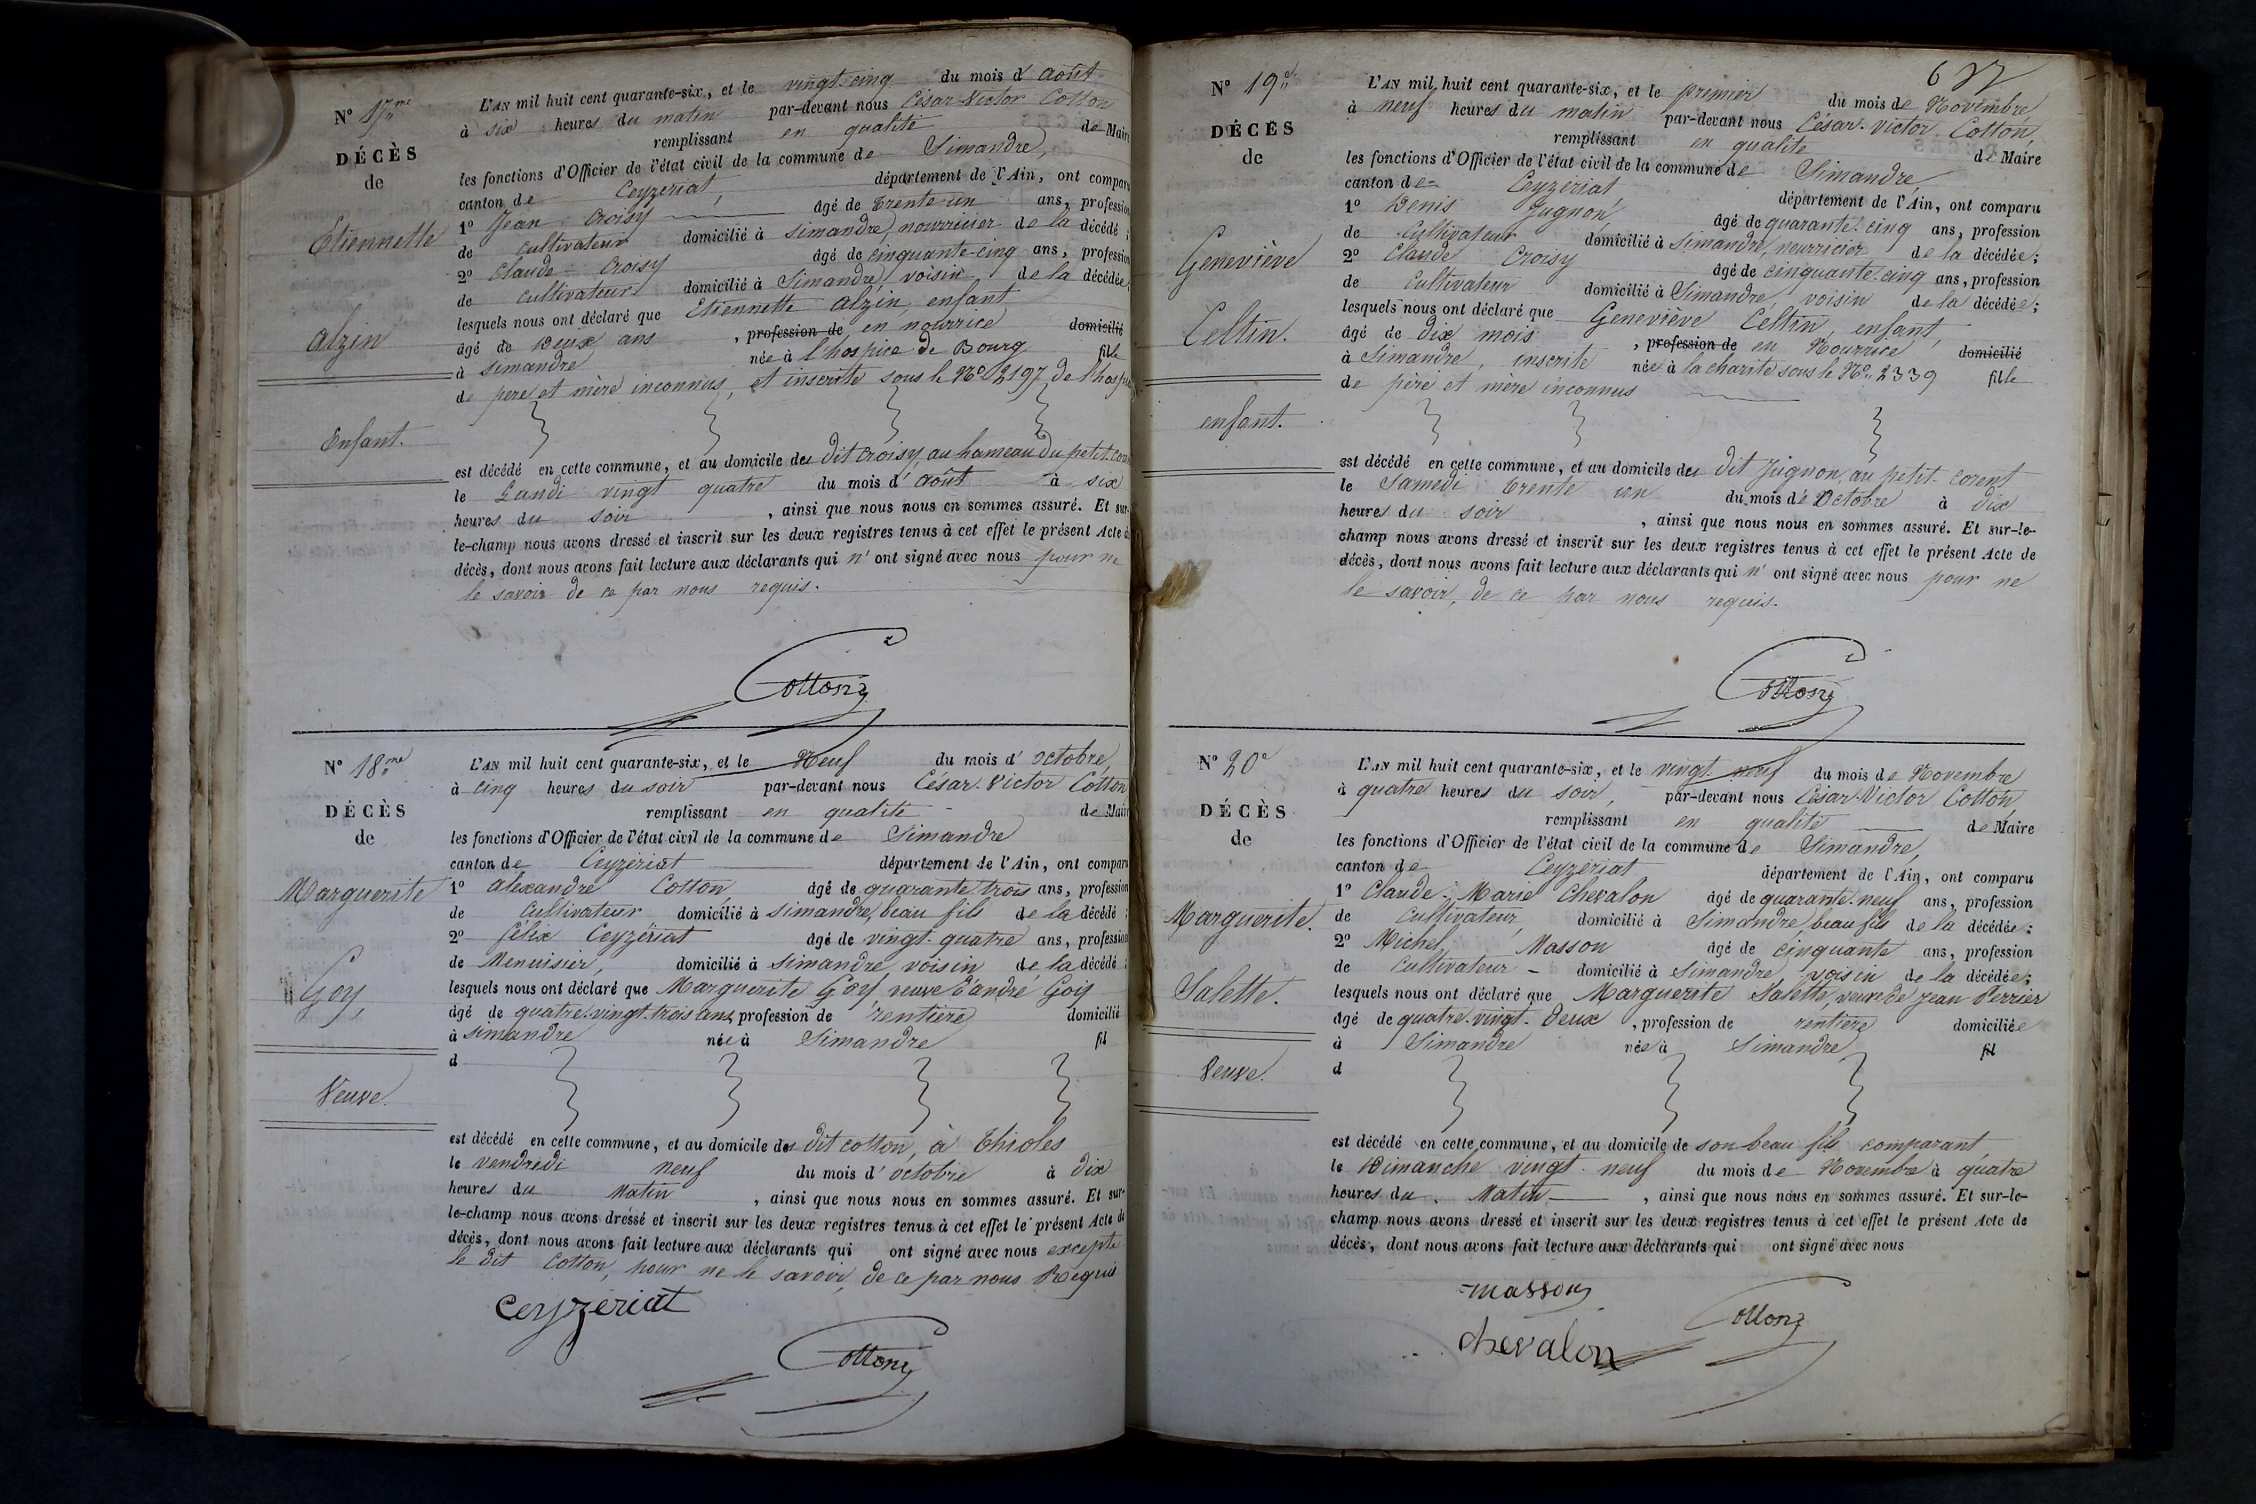 N° 17me
DÉCÈS
de
Etiennette
Alzin
Enfant.
L'AN mil huit cent quarante-six, et le vingt-cinq du mois d'Août
à six heures du matin par-devant nous César Victor Cotton
remplissant en qualité de Maire
les fonctions d'Officier de l'état civil de la commune de Simandre,
canton de Ceyzériat, département de l'Ain, ont comparu
1° Jean Croisy âgé de trente un ans, profession
de cultivateur domicilié à Simandre, nourricier de la décédé ;
2° Claude Croisy âgé de cinquante-cinq ans, profession
de cultivateur domicilié à Simandre, voisin de la décédée ;
lesquels nous ont déclaré que Etiennette Alzin, enfant
âgé de Deux ans , profession de en nourrice domicilié
à Simandre née à l'hospice de Bourg fille
de père et mère inconnus, et inscrite sous le N° 2197 de l'hospice
est décédé en cette commune, et au domicile du dit Croisy au hameau du petit
le Lundi vingt quatre du mois d'Août à six
heures du soir , ainsi que nous nous en sommes assuré. Et sur-
le-champ nous avons dressé et inscrit sur les deux registres tenus à cet effet le présent Acte de
décès, dont nous avons fait lecture aux déclarants qui n'ont signé avec nous pour ne
le savoir de ce par nous requis.
Cotton
N° 18me
DÉCÈS
de
Marguerite
Goy,
Veuve.
L'AN mil huit cent quarante-six, et le Neuf du mois d'Octobre,
à cinq heures du soir par-devant nous César-Victor Cotton
remplissant en qualité de Maire
les fonctions d'Officier de l'état civil de la commune de Simandre
canton de Ceyzériat département de l'Ain, ont comparu
1° Alexandre Cotton, âgé de quarante trois ans, profession
de Cultivateur domicilié à Simandre, beau fils de la décédé ;
2° Félix Ceyzériat âgé de vingt-quatre ans, profession
de Menuisier, domicilié à Simandre, voisin de la décédé ;
lesquels nous ont déclaré que Marguerite Goy, veuve d'André Goy
âgé de quatre-vingt-trois ans, profession de rentière domicilié
à Simandre née à Simandre fil
d
est décédé en cette commune, et au domicile du dit Cotton, à Thioles
le vendredi neuf du mois d'octobre à dix
heures du Matin , ainsi que nous nous en sommes assuré. Et sur-
le-champ nous avons dressé et inscrit sur les deux registres tenus à cet effet le présent Acte de
décès, dont nous avons fait lecture aux déclarants qui ont signé avec nous excepté
le dit Cotton, pour ne le savoir, de ce par nous Requis
Ceyzeriat
Cotton
N° 19e
DÉCÈS
de
Geneviève
Celtin.
enfant.
L'AN mil huit cent quarante-six, et le premier du mois de Novembre
à neuf heures du matin par-devant nous César-Victor Cotton,
remplissant en qualité de Maire
les fonctions d'Officier de l'état civil de la commune de Simandre
canton de Ceyzériat département de l'Ain, ont comparu
1° Denis Jugnon âgé de quarante-cinq ans, profession
de Cultivateur domicilié à Simandre, nourricier de la décédée ;
2° Claude Croisy âgé de cinquante-cinq ans, profession
de Cultivateur domicilié à Simandre, voisin de la décédée ;
lesquels nous ont déclaré que Geneviève Celtin, enfant,
âgé de dix mois , profession de en Nourrice domicilié
à Simandre, inscrite née à la charité sous le N° 2339 fille
de père et mère inconnus
est décédé en cette commune, et au domicile du dit Jugnon, au petit-corent
le Samedi trente un du mois d'Octobre à dix
heures du soir , ainsi que nous nous en sommes assuré. Et sur-le-
champ nous avons dressé et inscrit sur les deux registres tenus à cet effet le présent Acte de
décès, dont nous avons fait lecture aux déclarants qui n'ont signé avec nous pour ne
le savoir, de ce par nous requis.
Cotton
N° 20e
DÉCÈS
de
Marguerite.
Salette.
Veuve.
L'AN mil huit cent quarante-six, et le vingt-neuf du mois de Novembre
à quatre heures du soir, par-devant nous César-Victor Cotton,
remplissant en qualité de Maire
les fonctions d'Officier de l'état civil de la commune de Simandre,
canton de Ceyzériat département de l'Ain, ont comparu
1° Claude-Marie Chevalon âgé de quarante-neuf ans, profession
de Cultivateur, domicilié à Simandre, beau fils de la décédée ;
2° Michel Masson âgé de cinquante ans, profession
de Cultivateur domicilié à Simandre voisin de la décédée ;
lesquels nous ont déclaré que Marguerite Salette, veuve de Jean Perrier
âgé de quatre-vingt-Deux , profession de rentière domiciliée
à Simandre née à Simandre fil
d
est décédé en cette commune, et au domicile de son beau fils comparant
le Dimanche vingt-neuf du mois de Novembre à quatre
heures du Matin , ainsi que nous nous en sommes assuré. Et sur-le-
champ nous avons dressé et inscrit sur les deux registres tenus à cet effet le présent Acte de
décès, dont nous avons fait lecture aux déclarants qui ont signé avec nous
Masson
Cotton
chevalon